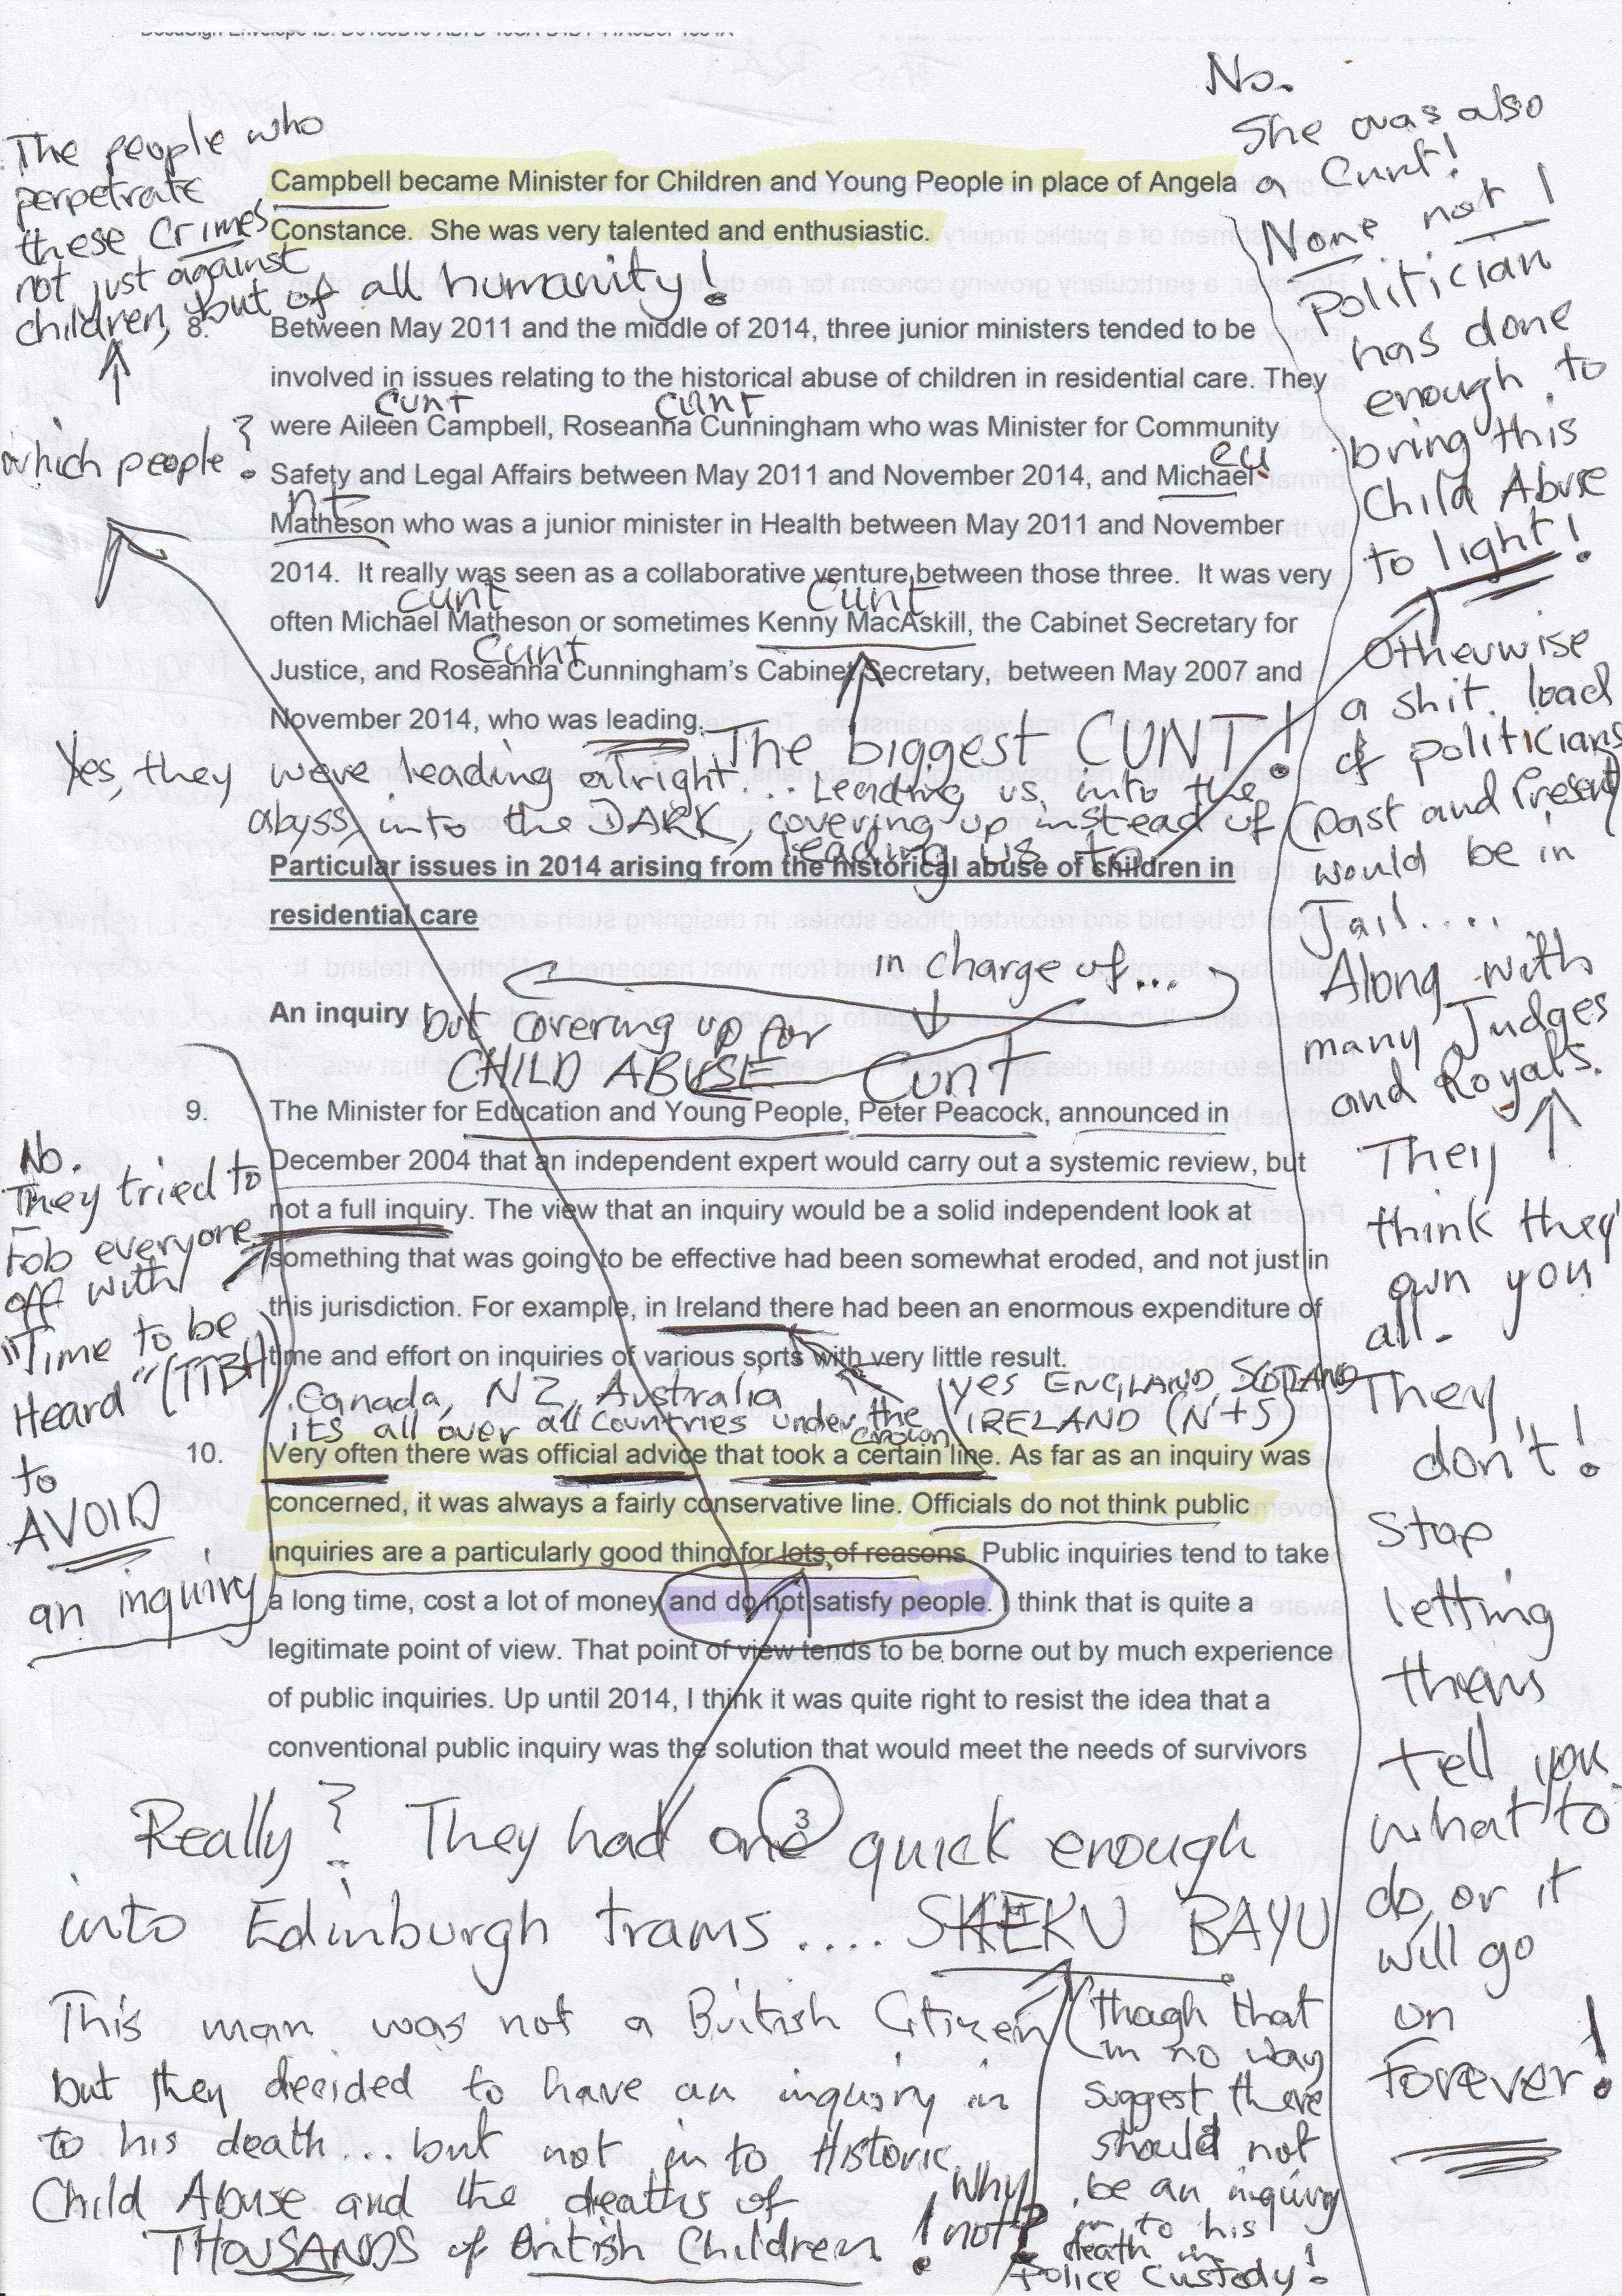 No.
She was also
a Cunt!
None not!
Politician
has done
enough to
bring this
Child Abuse
to light!
The people who
perpetrate
these Crimes
not just against
children, but of all humanity!
which people?
Campbell became Minister for Children and Young People in place of Angela
Constance.  She was very talented and enthusiastic.
8. Between May 2011 and the middle of 2014, three junior ministers tended to be
involved in issues relating to the historical abuse of children in residential care. They
cunt cunt
were Aileen Campbell, Roseanna Cunningham who was Minister for Community
cu
Safety and Legal Affairs between May 2011 and November 2014, and Michael
nt
Matheson who was a junior minister in Health between May 2011 and November
2014.  It really was seen as a collaborative venture between those three.  It was very
cunt Cunt
often Michael Matheson or sometimes Kenny MacAskill, the Cabinet Secretary for
Cunt
Justice, and Roseanna Cunningham's Cabinet Secretary,  between May 2007 and
November 2014, who was leading.
The biggest CUNT!
Yes, they were leading alright... Leading us into the
abyss, into the DARK, covering up instead of
leading us to
Otherwise
a shit load
of politicians
(past and Present)
would be in
Jail....
Along with
many Judges
and Royals.
They
think they
own you
all.
They
don't!
Stop
letting
them
tell you
what to
do or it
will go
on
Forever!
Particular issues in 2014 arising from the historical abuse of children in
residential care
in charge of...
An inquiry
but covering up for
CHILD ABUSE Cunt
9. The Minister for Education and Young People, Peter Peacock, announced in
December 2004 that an independent expert would carry out a systemic review, but
not a full inquiry. The view that an inquiry would be a solid independent look at
something that was going to be effective had been somewhat eroded, and not just in
this jurisdiction. For example, in Ireland there had been an enormous expenditure of
time and effort on inquiries of various sorts with very little result.
No.
They tried to
Fob everyone
off with
"Time to be
Heard" (TTBH)
to
AVOID
an inquiry
Canada, NZ, Australia
its all over all countries under the
crown
yes ENGLAND, SCOTLAND
IRELAND (N+S)
10. Very often there was official advice that took a certain line. As far as an inquiry was
concerned, it was always a fairly conservative line. Officials do not think public
inquiries are a particularly good thing for lots of reasons. Public inquiries tend to take
a long time, cost a lot of money and do not satisfy people. I think that is quite a
legitimate point of view. That point of view tends to be borne out by much experience
of public inquiries. Up until 2014, I think it was quite right to resist the idea that a
conventional public inquiry was the solution that would meet the needs of survivors
3
Really? They had one quick enough
into Edinburgh trams.... SHEKU BAYU
This man was not a British Citizen
but they decided to have an inquiry in
to his death... but not in to Historic
Child Abuse and the deaths of
THOUSANDS of British Children! Why not?
(though that
in no way
suggest there
should not
be an inquiry
in to his
death in
Police Custody!